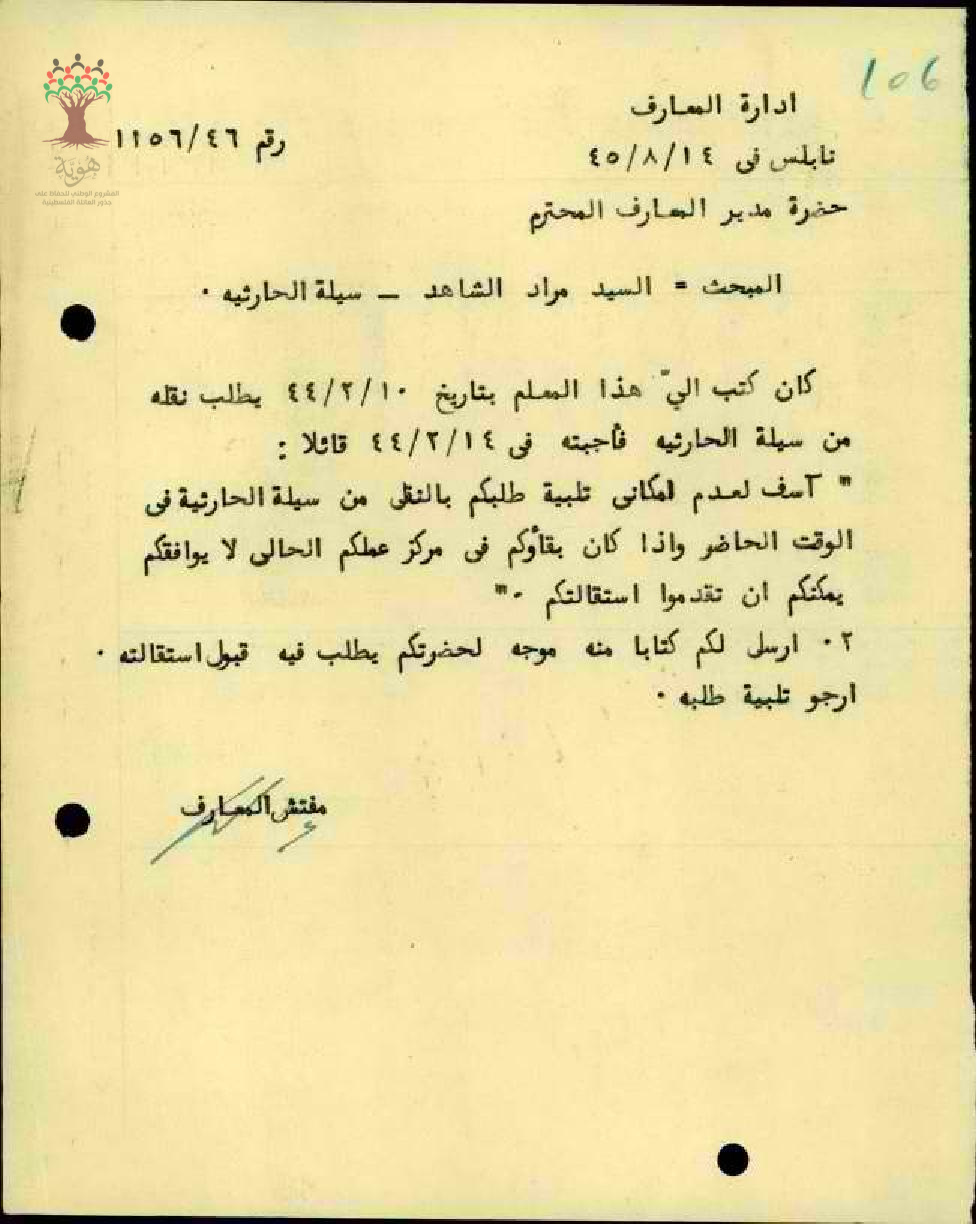 106
ادارة المعارف
رقم ١١٥٦/٤٦
نابلس فى ٤٥/٨/١٤
هوية
المشروع الوطني للحفاظ على
جذور العائلة الفلسطينية
حضرة مدير المعارف المحترم
المبحث = السيد مراد الشاهد — سيلة الحارثيه ٠
كان كتب اليّ هذا المعلم بتاريخ ٤٤/٢/١٠ يطلب نقله
من سيلة الحارثيه فأجبته فى ٤٤/٢/١٤ قائلا :
" آسف لعدم امكانى تلبية طلبكم بالنقل من سيلة الحارثية فى
الوقت الحاضر واذا كان بقاؤكم فى مركز عملكم الحالى لا يوافقكم
يمكنكم ان تقدموا استقالتكم ٠"
٢٠ ارسل لكم كتابا منه موجه لحضرتكم يطلب فيه قبول استقالته ٠
ارجو تلبية طلبه ٠
مفتش المعارف